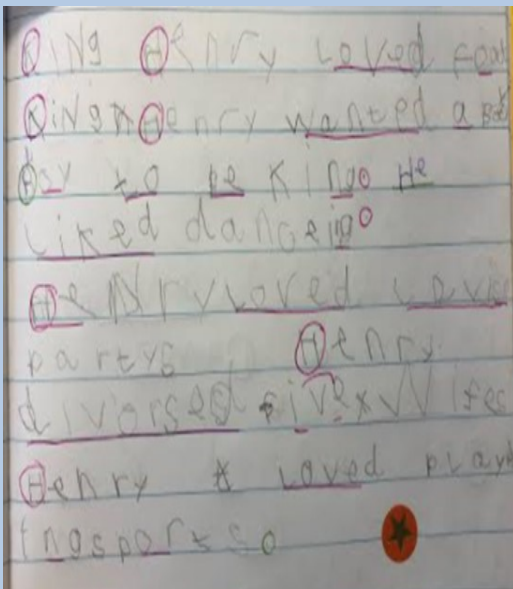 King Henry loved food
King Henry wanted a
boy to be king. He
Liked danceing.
Henry loved
partys Henry
divorsed five x Wifes
Henry loved play
ingsports.